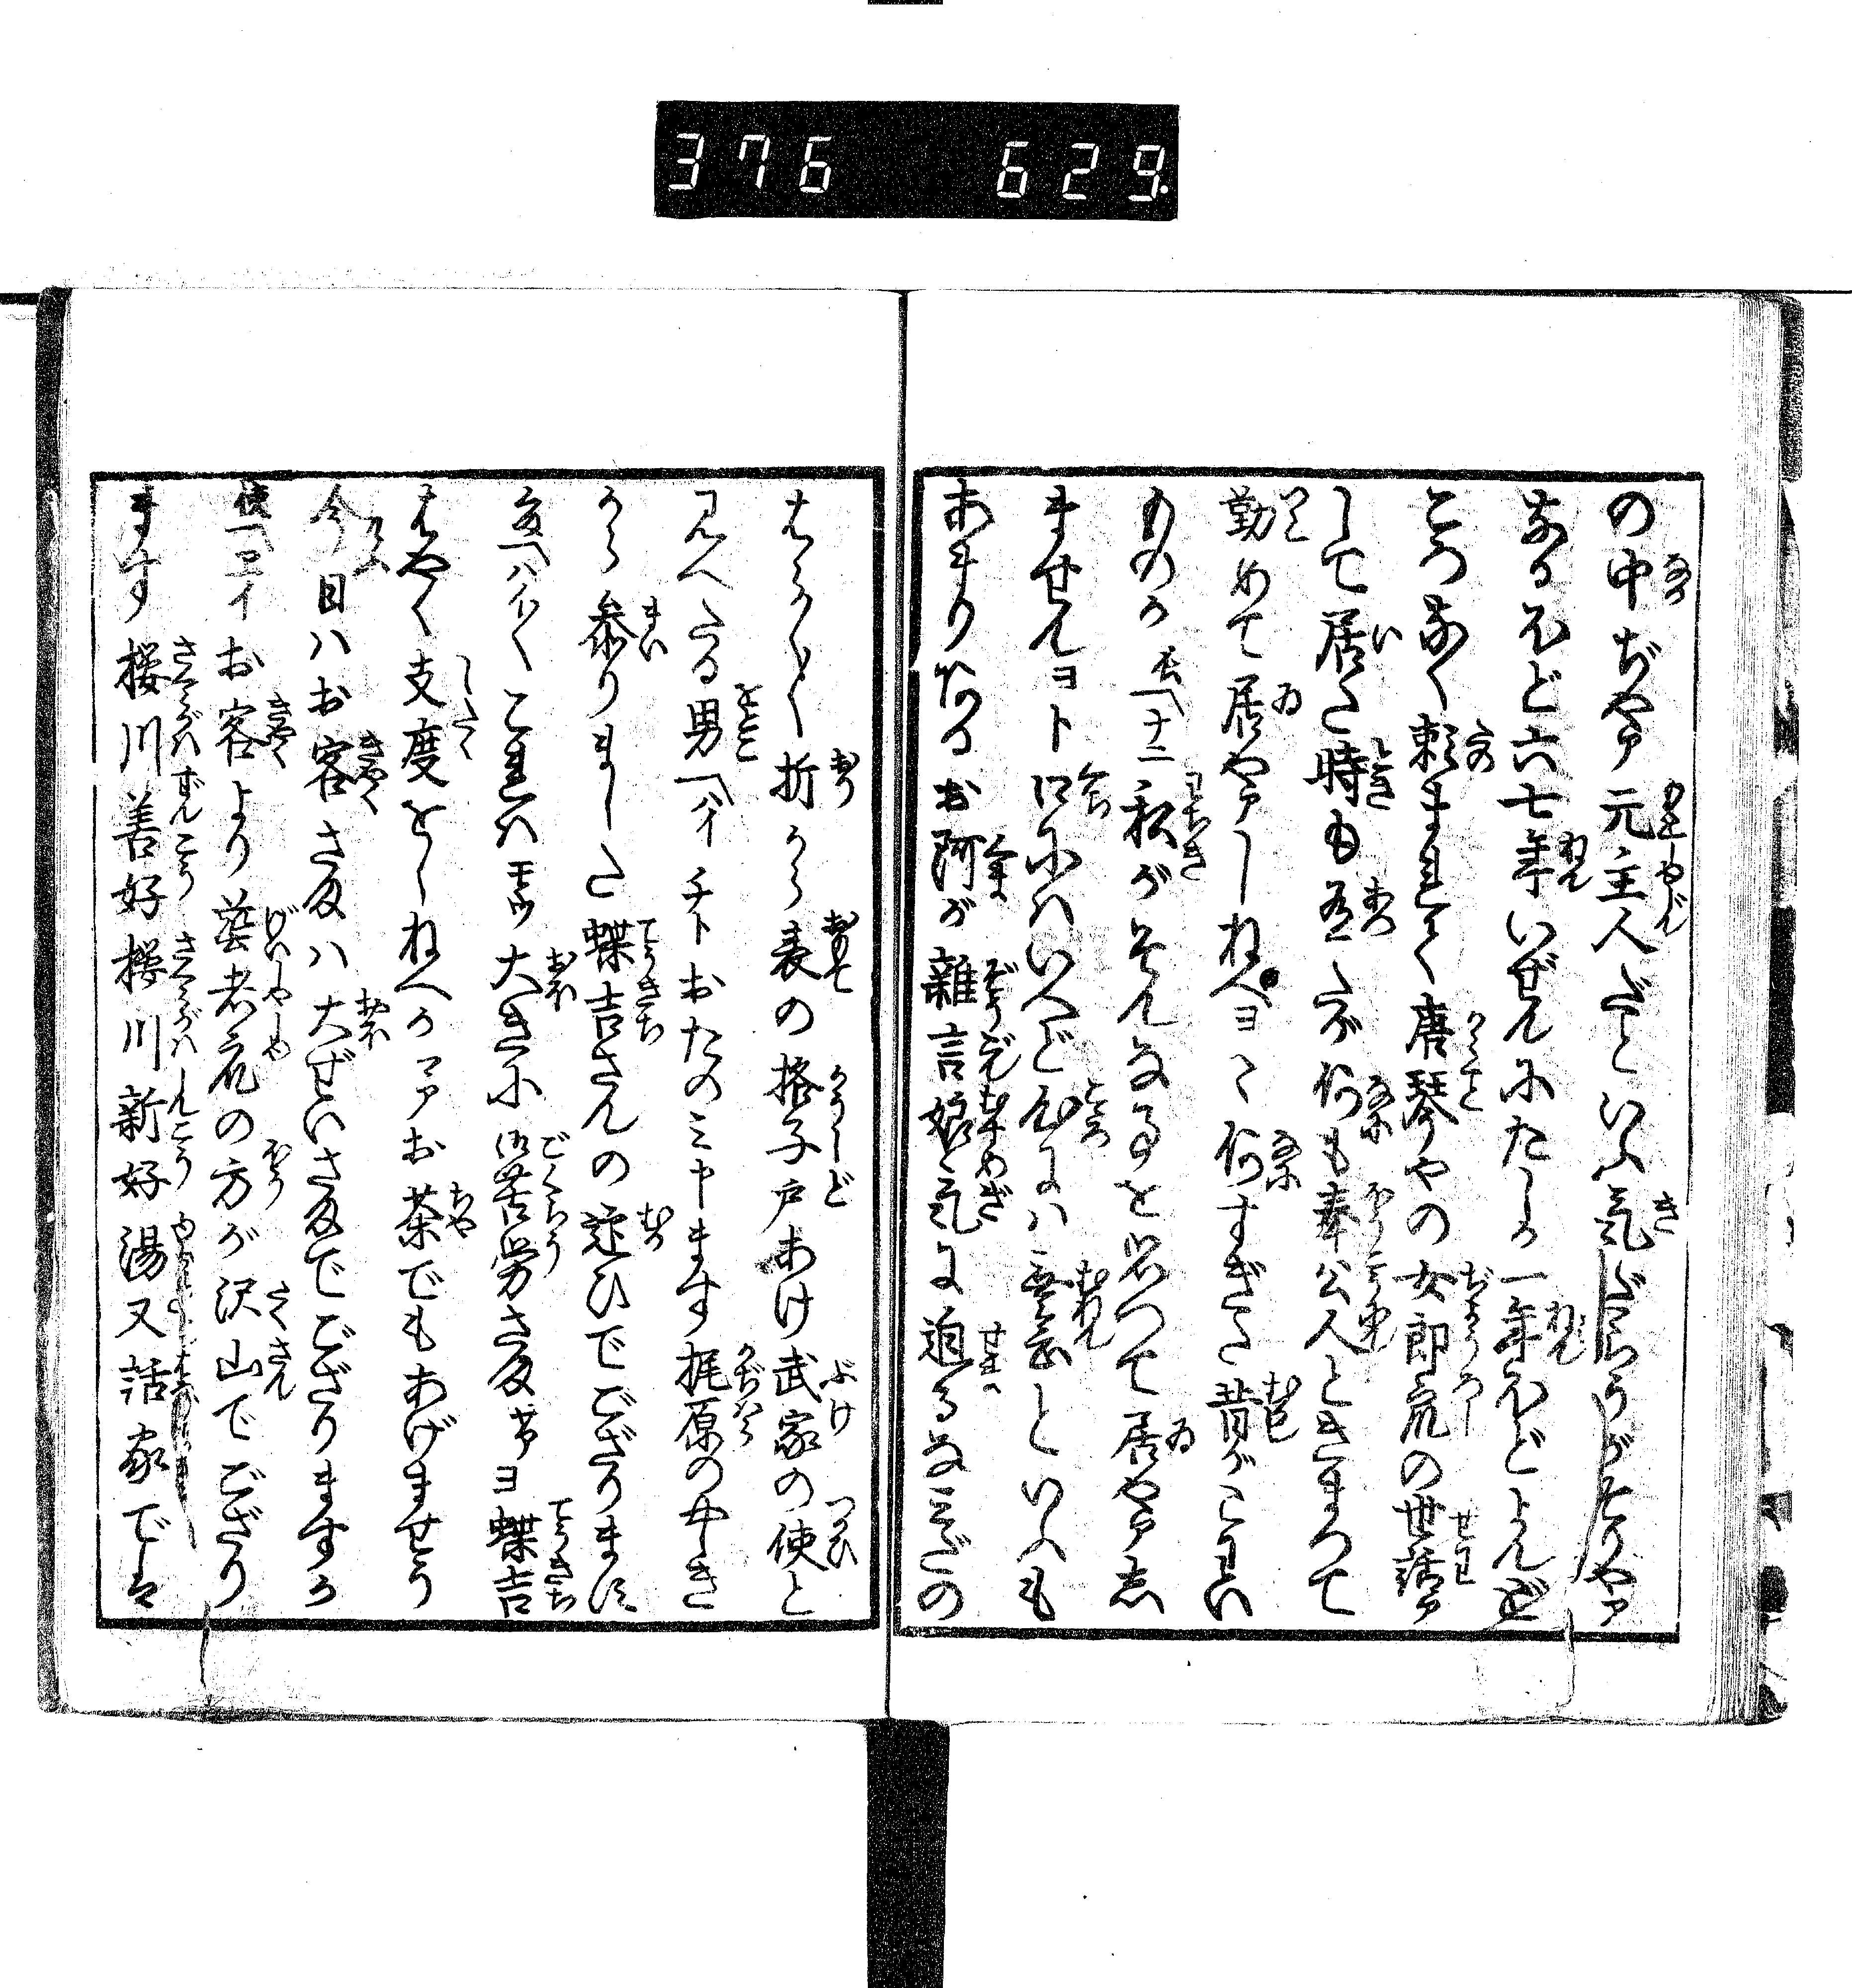 376 629
の中ぢやア元主人だといふ気だらうがそりやア
なるほど六七年いぜんにたしか一年ほどよんど
ころなく頼まれて唐琴やの女郎衆の世話ア
して居た時も有たが何も奉公人ときまつて
勤めて居やアしねへヨヽ何すぎた昔がこわい
ものか 長「ナニ私がそんな事を思つて居やアし
ませんヨト口にはいへど心には無念といふも
あまりなるお阿が雑言娘気に迫るなみだの
はら〱折から表の格子戸あけ武家の使と
見へたる男「ハイチトおたのミ申ます梶原の やしき
から参りました蝶吉さんの迎ひでござります
阿「ハイ〱これはモウ大きに御苦労さまだヨ蝶吉
はやく支度をしねへかマアお茶でもあげませう
今日ハお客さまハ大ぜいさまでござりますか
使「ヱイお客より芸者衆の方が沢山でござり
ます桜川善好桜川新好湯又話家では